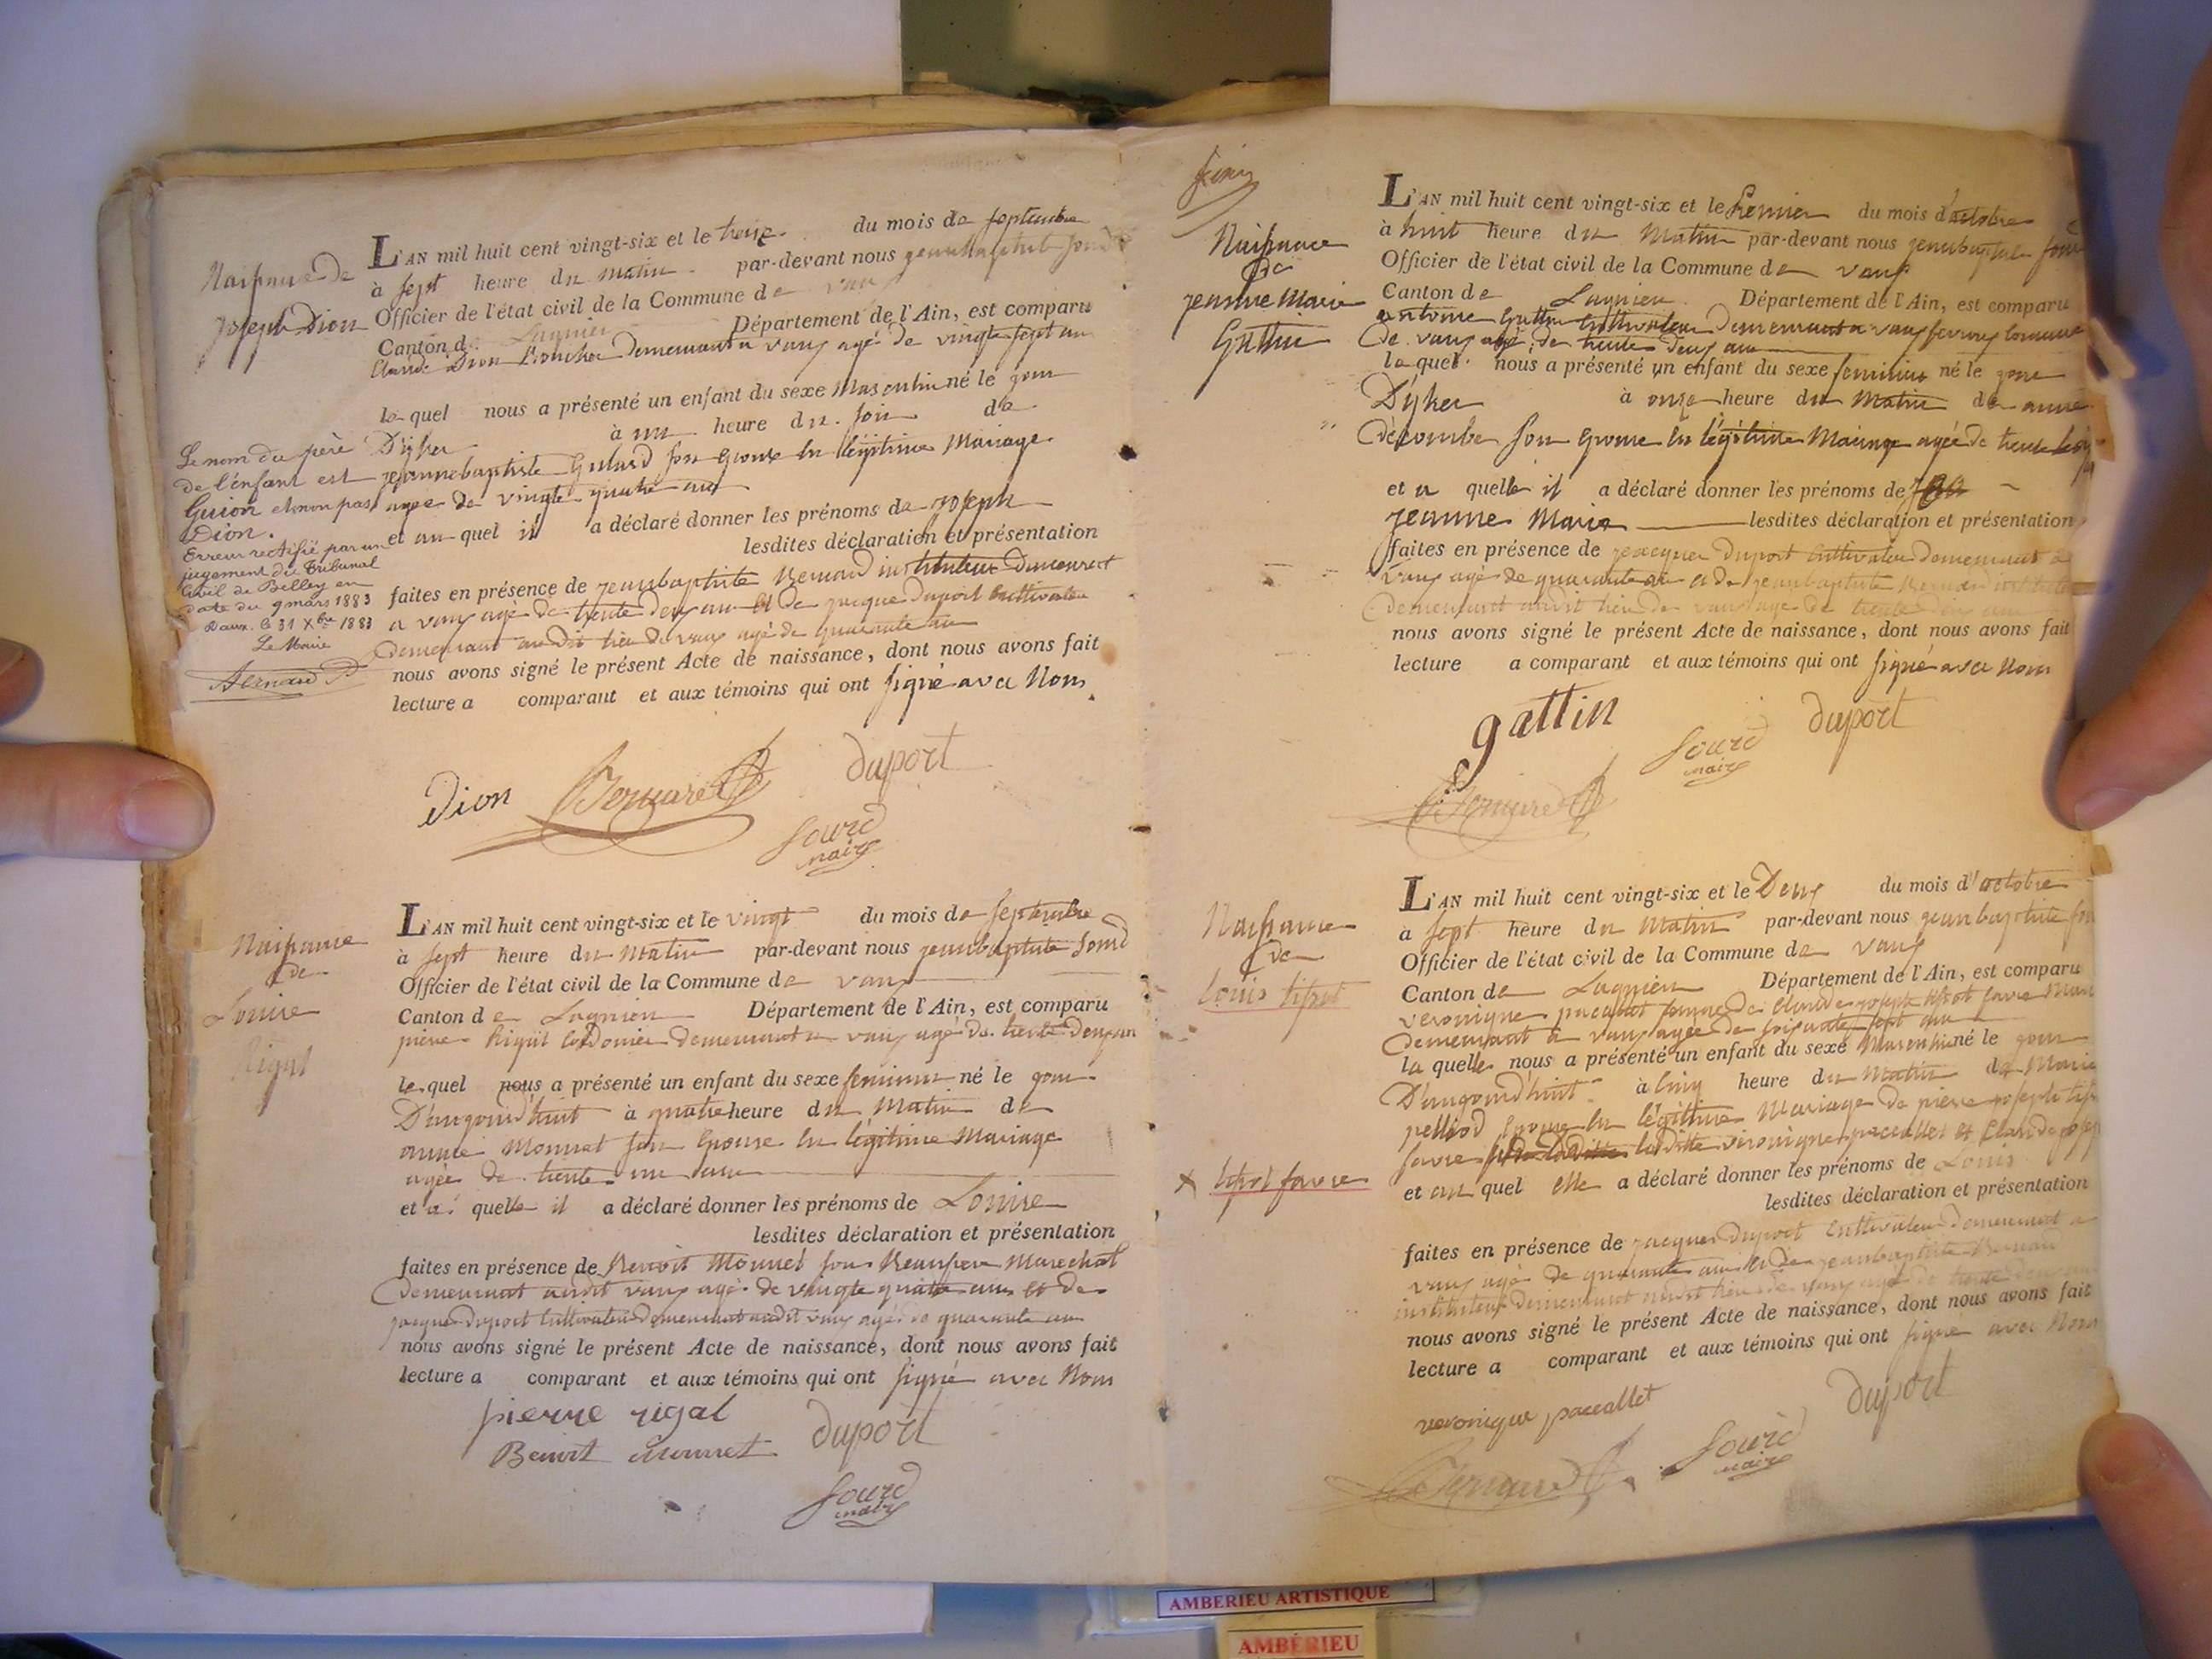 Naissance de
Joseph Dion
L'AN mil huit cent vingt-six et le treize du mois de septembre
à sept heure du matin par-devant nous jeanbaptiste sourd
Officier de l'état civil de la Commune de vaux
Canton de Lagnieu Département de l'Ain, est comparu
Claude Dion demeurant a vaux agé de vingt sept an
le quel nous a présenté un enfant du sexe Masculin né le jour
D'yher à un heure du soir de
jeannebaptiste son Epouse En légitime Mariage
agee de vingte quatre ans
et au quel il a déclaré donner les prénoms de joseph
lesdites déclaration et présentation
faites en présence de jeanbaptiste Bernard instituteur Demeurant
a vaux agé de trente deux an Et de jacque Duport Cultivateu
demeurant audit lieu de vaux agé de quarante an
nous avons signé le présent Acte de naissance, dont nous avons fait
lecture a comparant et aux témoins qui ont signé avec Nous
Le nom du père
de l'enfant est
Guion et non pas
Dion.
Erreur rectifié par un
jugement du Tribunal
Civil de Belley en
date du 9 mars 1883
Vaux le 31 Xbre 1883
Le Maire
Bernard
Dion Bernard duport
sourd
maire
Naissance
de
Louise
Rigal
L'AN mil huit cent vingt-six et le vingt du mois de septembre
à sept heure du Matin par-devant nous jeanbaptiste sourd
Officier de l'état civil de la Commune de vaux
Canton de Lagnieu Département de l'Ain, est comparu
pierre Rigal Cordonier demeurant a vaux agé de trente deux an
le quel nous a présenté un enfant du sexe feminin né le jour
D'aujourd'huit à quatre heure du Matin de
annie Monnet son Epouse En légitime Mariage
agée de trente un an
et a quelle il a déclaré donner les prénoms de Louise
lesdites déclaration et présentation
faites en présence de Benoit Monnet son Beaufrere Marechal
demeurant audit vaux agé de vingte quatre ans et de
jacque Duport Cultivateu demeurant audit vaux agé de quarante an
nous avons signé le présent Acte de naissance, dont nous avons fait
lecture a comparant et aux témoins qui ont signé avec Nous
pierre rigal duport
Benoit monnet
sourd
maire
Naissance
de
jeanne Marie
Guttin
L'AN mil huit cent vingt-six et le Premier du mois d'octobre
à huit heure du Matin par-devant nous jeanbaptiste sourd
Officier de l'état civil de la Commune de vaux
Canton de Lagnieu Département de l'Ain, est comparu
antoine Guttin Cultivateu demeurant a vaux commune
de vaux agé de trente deux an
le quel nous a présenté un enfant du sexe feminin né le jour
D'yher à onze heure du Matin de anne
décombe son Epouse En légitime Mariage agée de trente
et a quelle il a déclaré donner les prénoms de
jeanne Marie lesdites déclaration et présentation
faites en présence de jacques Duport Cultivateu demeurant a
vaux agé de quarante an et de jeanbaptiste Bernard
demeurant audit lieu de vaux agé de trente deux an
nous avons signé le présent Acte de naissance, dont nous avons fait
lecture a comparant et aux témoins qui ont signé avec Nous
gattin duport
sourd
maire
Bernard
Naissance
de
Louis tifrot
L'AN mil huit cent vingt-six et le Deux du mois d'octobre
à sept heure du Matin par-devant nous jeanbaptiste
Officier de l'état civil de la Commune de vaux
Canton de Lagnieu Département de l'Ain, est comparu
veronique pacallet femme de Claude joseph favre
demeurant à vaux agée de soixante sept an
la quelle nous a présenté un enfant du sexe Masculin né le jour
D'aujourd'huit à Cinq heure du Matin de Marie
Epouse En légitime Mariage de pierre joseph
favre laditte vironique et Claude
et au quel elle a déclaré donner les prénoms de Louis
lesdites déclaration et présentation
faites en présence de jacques Duport Cultivateu demeurant a
vaux agé de quarante an et de jeanbaptiste Bernard
instituteur demeurant audit lieu de vaux agé de trente
nous avons signé le présent Acte de naissance, dont nous avons fait
lecture a comparant et aux témoins qui ont signé avec Nous
veronique pacallet duport
sourd
maire
Bernard
AMBERIEU ARTISTIQUE
AMBÉRIEU